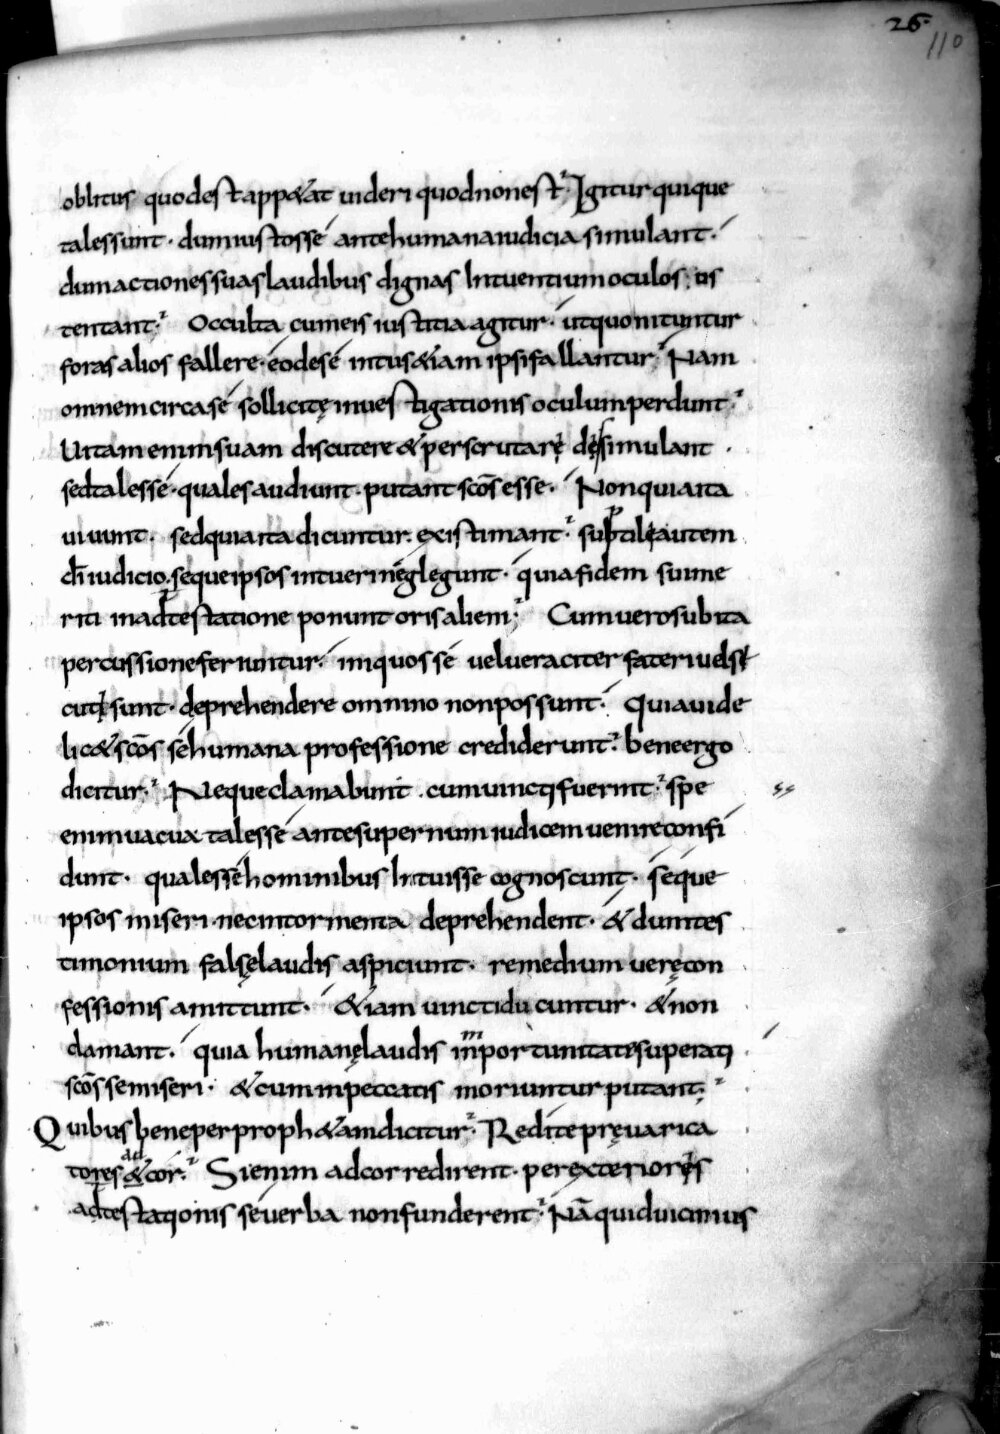 26.
110
oblitus quod est app&at uideri quod non est. Igitur quique
tales sunt. dum iustos sé ante humana iudicia simulant.
dum actiones suas laudibus dignas Intuentium oculos; os
tentant. Occulta cum eis iustitia agitur. ut quo nituntur
foras alios fallere. eo de sé intus &iam ipsi fallantur. Nam
omnem circa sé sollicitę inuestigationis oculum perdunt.
Uitam enim suam discutere & perscrutarę dęsimulant.
sed tales sé. quales audiunt. putant scōs esse. Non quia ita
uiuunt. sed quia ita dicuntur. existimant. subptile autem
dī iudicio. seque ipsos intueri néglegunt. quia fidem sui me
riti in adtestatione ponunt oris alieni. Cum uero subita
percussione feriuntur. iniquos sé uel ueraciter fateri uel si
cuti sunt. deprehendere omnino non possunt. Quia uide
lic& scōs sé humana professione crediderunt. bene ergo
dicitur. Neque clamabunt. cum uincti fuerint. spe
enim uacua tales sé ante supernum iudicem uenire confi
dunt. quales sé hominibus Intuisse cognoscunt. séque
ipsos miseri. nec in tormenta deprehendent. & dum tes
timonium falsę laudis aspiciunt. remedium uerę con
fessionis amittunt. &iam uincti ducuntur. & non
clamant. quia humanę laudis inmportunitate superati
scōs se miseri. & cum in peccatis moriuntur putant.
Quibus bene per proph&am dicitur. Redite pręuarica
tores ad &cor. Si enim ad cor redirent. per exteriores
adtestationis sé uerba non funderent. Nā quid uicinius